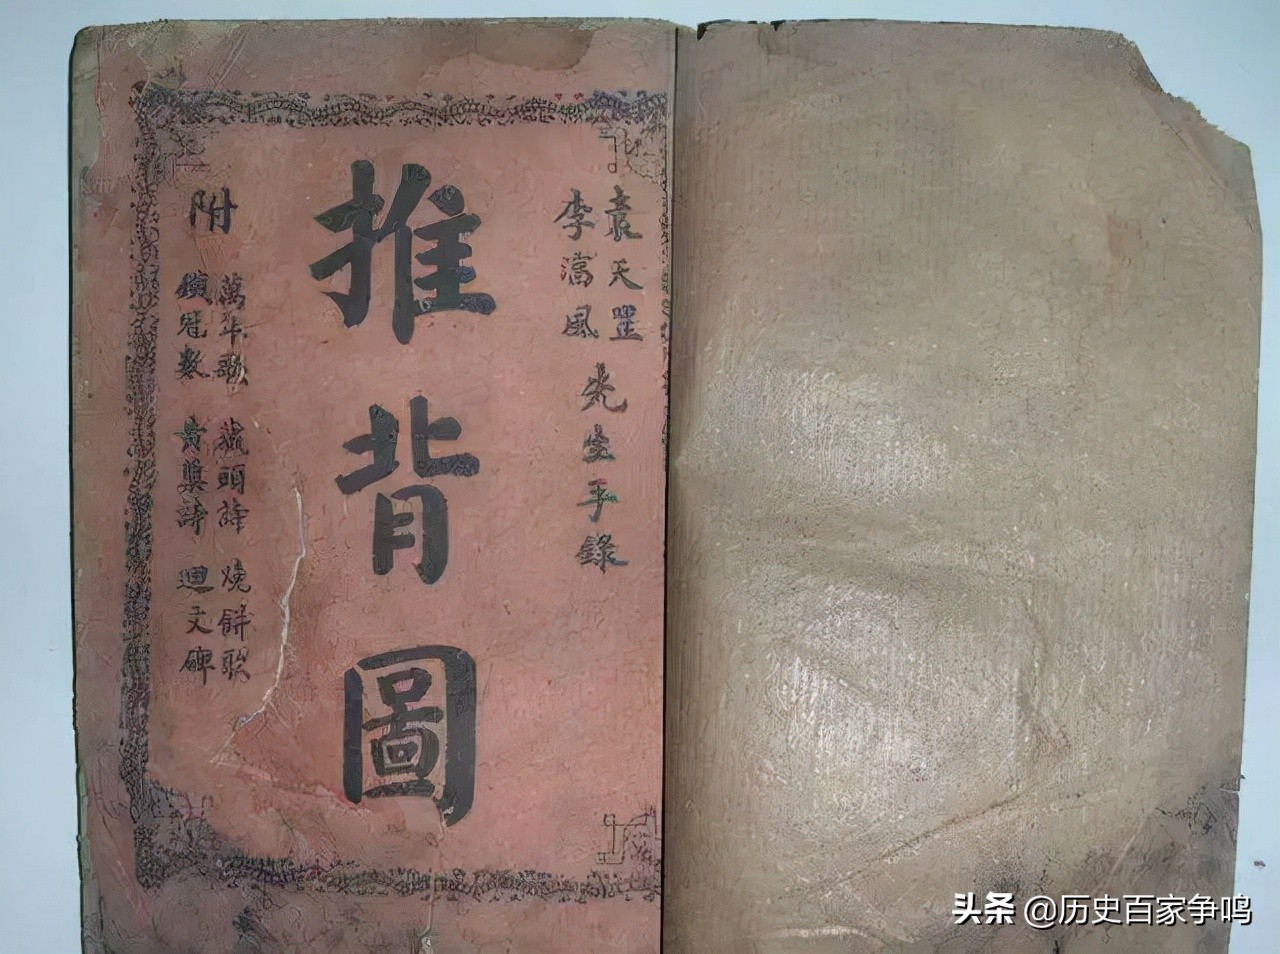 袁天罡
李淳風
先生手錄
推背圖
附
萬年歌 藏頭詩 燒餅歌
數 黃 詩 迴文碑
头条 @历史百家争鸣